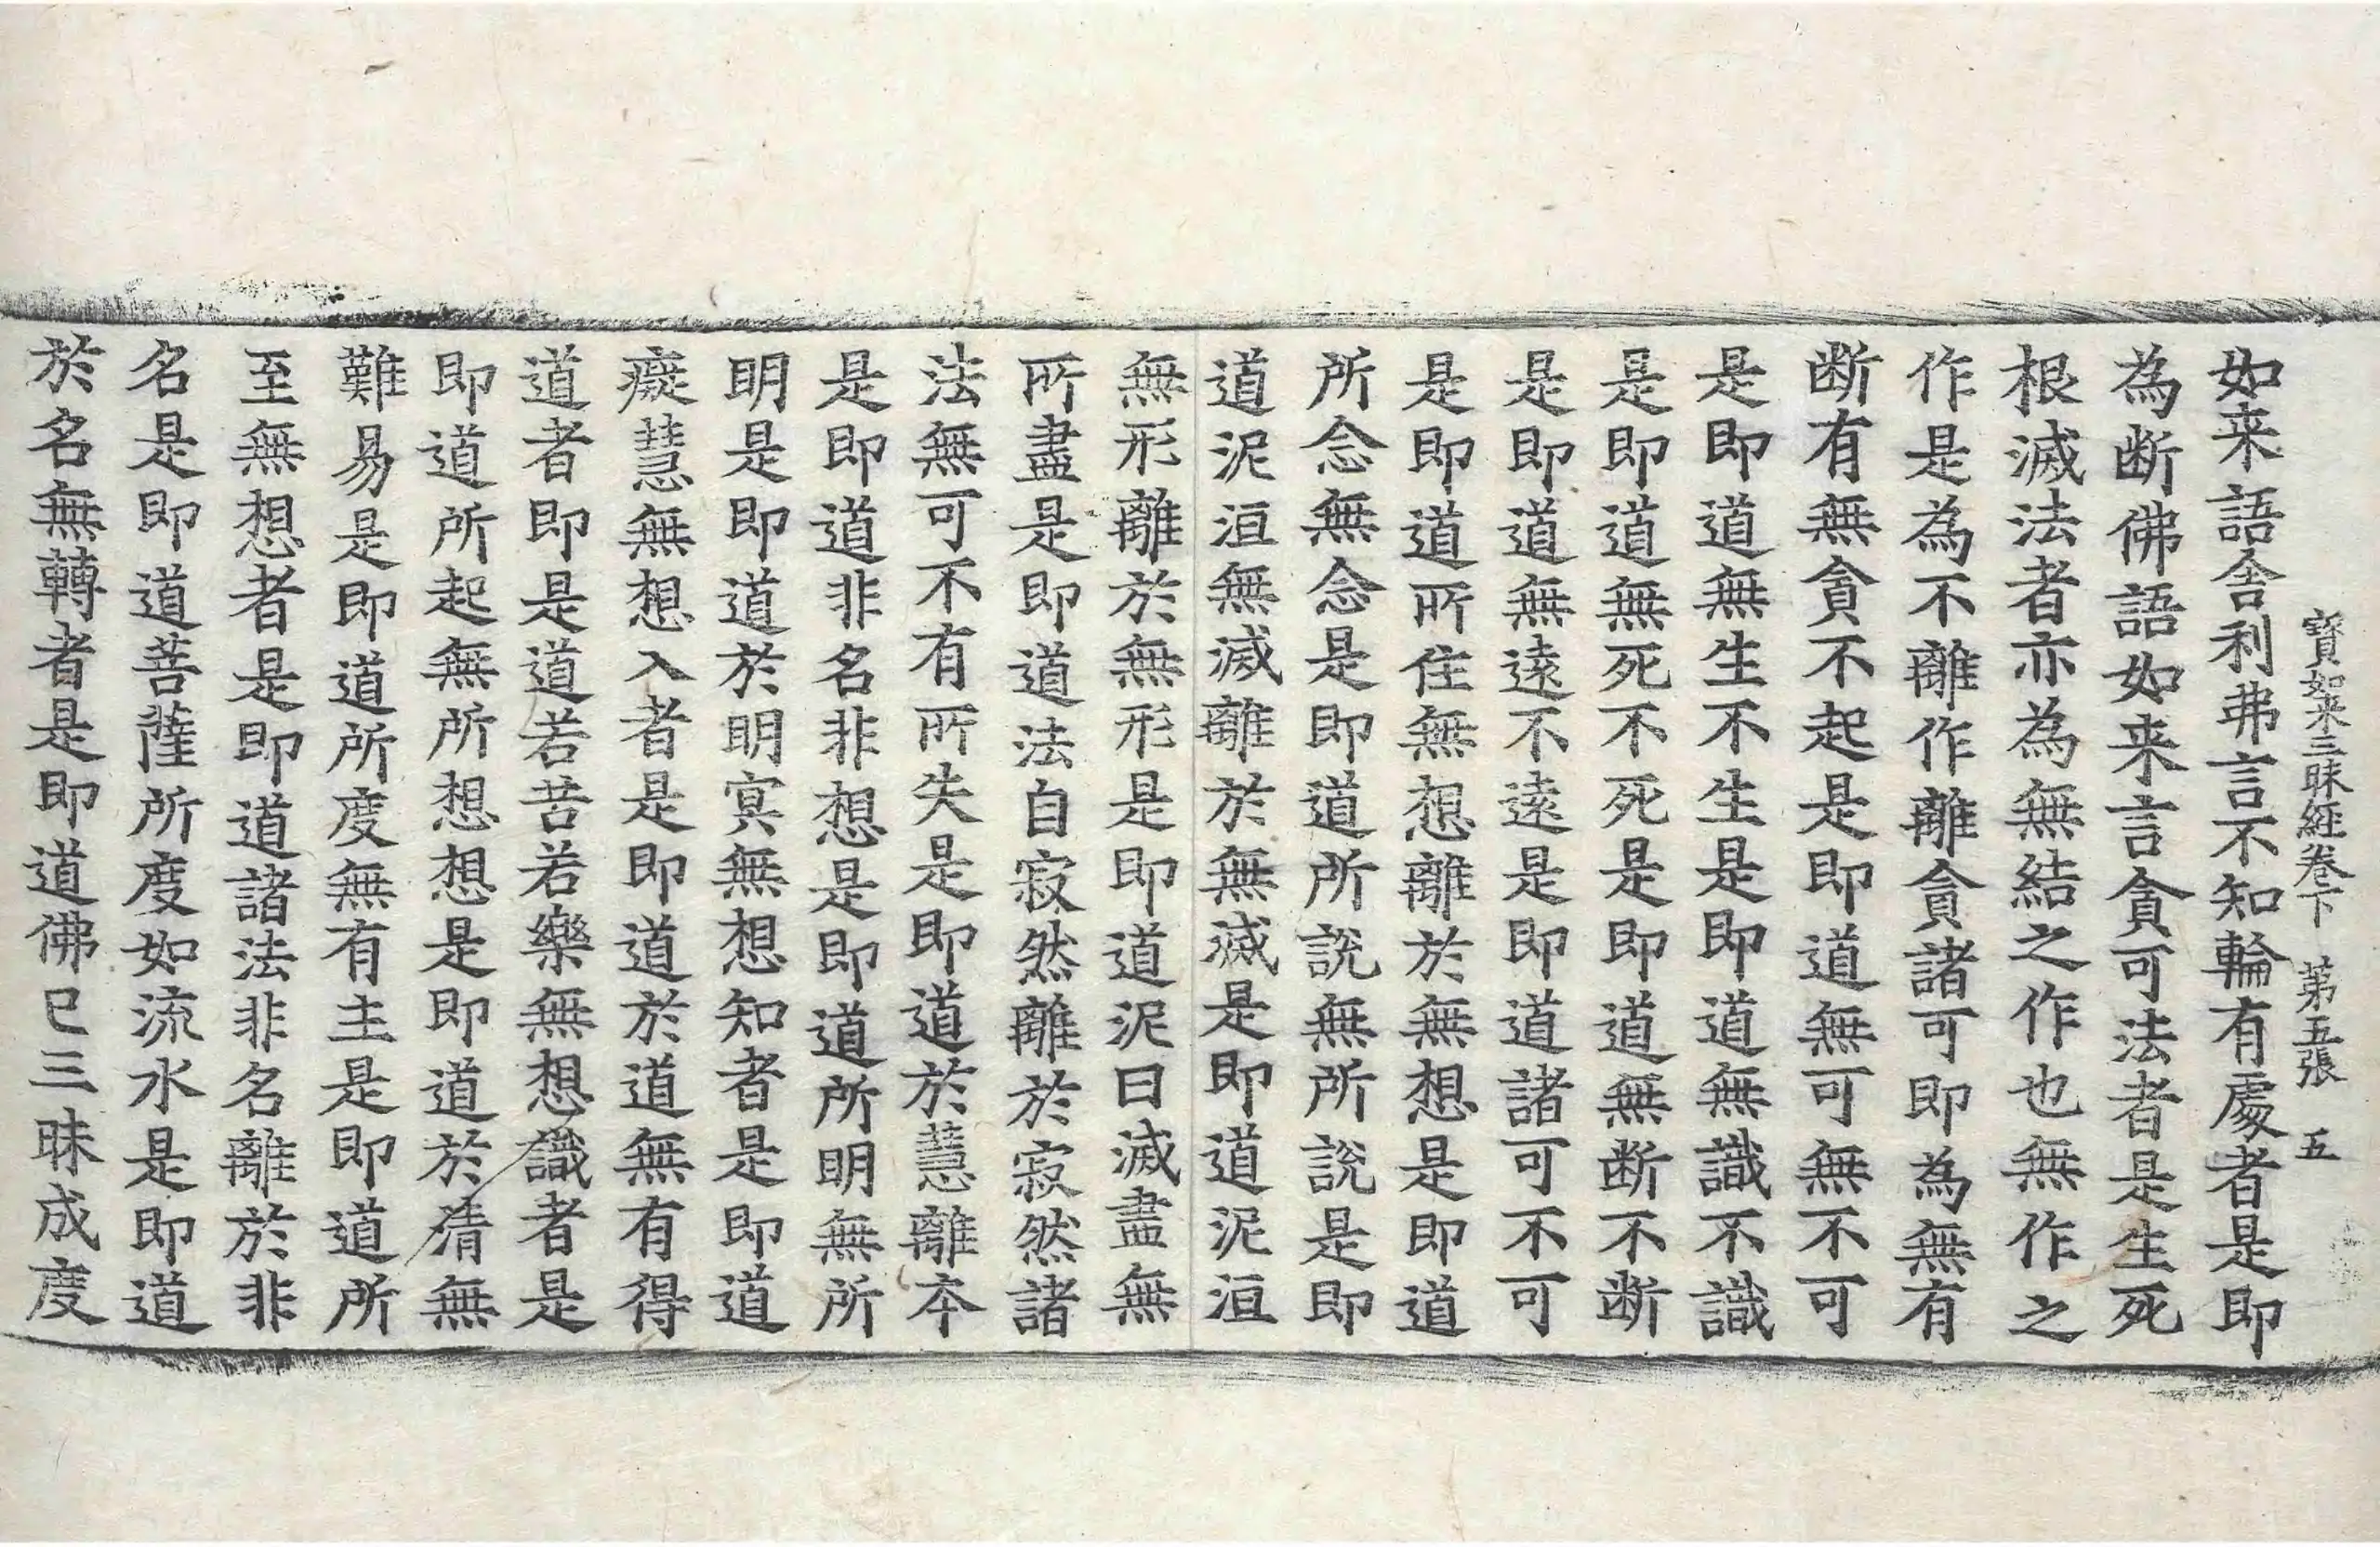 寶如来三昧経卷下 第五張 五
如来語舎利弗言不知輪有處者是即
為断佛語如来言貪可法者是生死
根滅法者亦為無結之作也無作之
作是為不離作離貪諸可即為無有
断有無貪不起是即道無可無不可
是即道無生不生是即道無識不識
是即道無死不死是即道無断不断
是即道無遠不遠是即道諸可不可
是即道所住無想離於無想是即道
所念無念是即道所説無所説是即
道泥洹無滅離於無滅是即道泥洹
無形離於無形是即道泥曰滅盡無
所盡是即道法自寂然離於寂然諸
法無可不有所失是即道於慧離本
是即道非名非想是即道所明無所
明是即道於明冥無想知者是即道
癡慧無想入者是即道於道無有得
道者即是道若苦若樂無想識者是
即道所起無所想想是即道於猗無
難易是即道所度無有主是即道所
至無想者是即道諸法非名離於非
名是即道菩薩所度如流水是即道
於名無轉者是即道佛已三昧成度